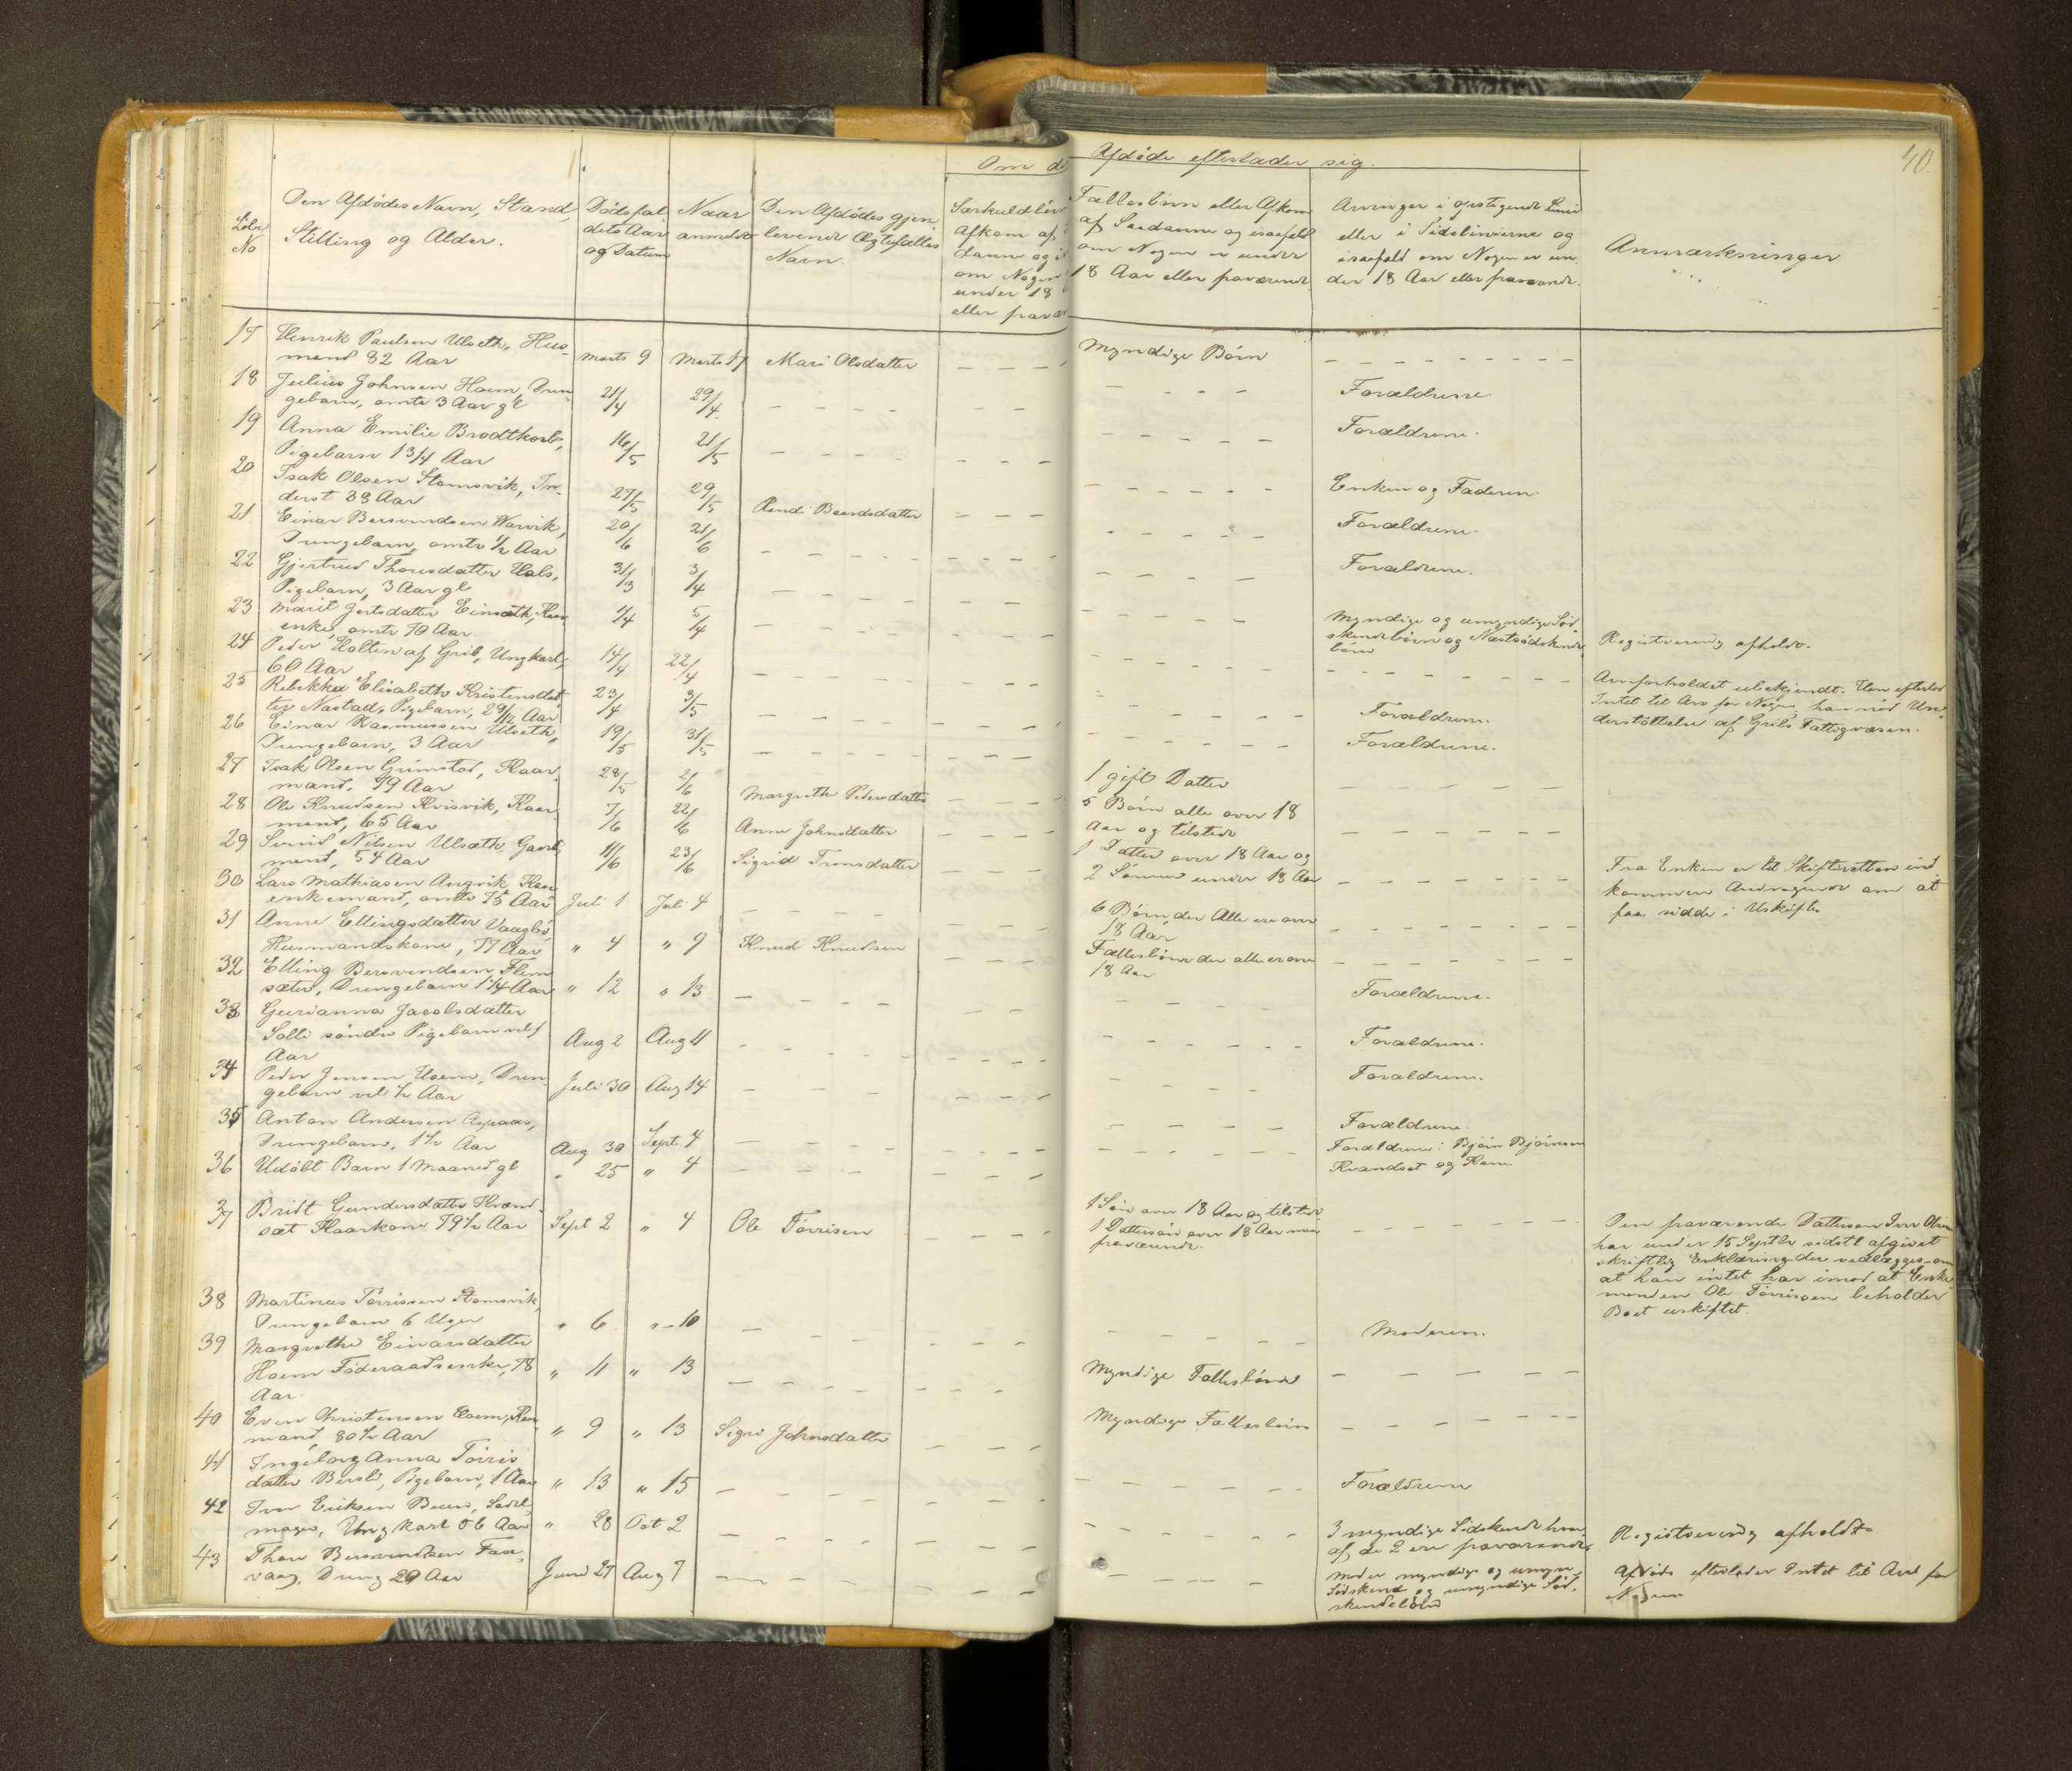 40.
Om de Afdøde efterlader sig.
Løbe
No
Den Afdødes Navn, Stand,
Stilling og Alder.
Dødsfal
dets Aar
og Datum
Naar
anmeldt
Den Afdødes gjen
levende Ægtefælles
Navn.
Særkuldbørn
Afkom af
danne og i
om Nogen
under 18
eller fravær
Fællesbørn eller Afkom
af Saadanne og isaafald
om Nogen er under
18 Aar eller fraværende
Arvinger i opstigende Linie
eller i Sidelinierne og
isaafald om Nogen er un
der 18 Aar eller fraværende.
Anmærkninger
17 Henrik Paulsen Ulseth, Hus-
mand 82 Aar Marts 9 Marts 17 Mari Olsdatter - - - Myndige Børn - - - - - - -
18 Julius Johnsen Hoem, Dren
gebarn, omtr 3 Aar gl 21/4 29/4 - - - - - - - - - Forældrene.
19 Anna Emilie Brodtkorb,
Pigebarn 1 3/4 Aar 16/5 21/5 - - - - - - - - - Forældrene.
20 Isak Olsen Stomsvik, In-
derst 38 Aar 27/5 29/5 Rendi Beerdsdatter - - - - - - Enken og Faderen.
21 Einar Bersvendsen Warvik,
Drengebarn, omtr 1/2 Aar 20/6 21/6 - - - - - - - - - Forældrene.
22 Gjertrud Thoresdatter Hals,
Pigebarn, 3 Aar gl 31/3 3/4 - - - - - - - - - Forældrene.
23 Marit Jertsdatter Einsæth, Kaar
enke, omtr 70 Aar. 1/4 5/4 - - - - - - - - - Myndige og umyndige Sød
skendebørn og Næstsødskende
børn Registrering afholdt.
24 Peder Holten af Grib, Ungkarl,
60 Aar 14/4 22/4 - - - - - - - - - Arveforholdet ubekjendt. Han efterlod
Intet til Arv for Nogen, har nød Un
derstøttelse af Gribs Fattigvæsen.
25 Rebekka Elisabeth Kristensdat
ter Nastad, Pigebarn, 2 9/12 Aar 23/4 3/5 - - - - - - - - - Forældrene.
26 Einar Rasmussen Ulseth,
Drengebarn, 3 Aar 19/5 31/5 - - - - - - - - - Forældrene.
27 Isak Olsen Grimstad, Kaar
mand, 79 Aar 28/5 2/6 Margrethe Pedersdatter - - - 1 gift Datter - - - - - -
28 Ole Knudsen Kvisvik, Kaar
mand, 65 Aar 7/6 22/6 Anne Johnsdatter - - - 5 Børn alle over 18
Aar og tilstede - - - - - -
29 Svend Nilsen Ulsæth, Gaard
mand, 54 Aar 11/6 23/6 Sigrid Tronsdatter - - - 1 Datter over 18 Aar og
2 Sønner under 18 Aar - - - - - - Fra Enken er til Skifteretten ind
kommen Andragende om at
faa sidde i Uskifte
30 Lars Mathiasen Angvik, Kaar
enkemand, omtr 75 Aar Juli 1 Juli 4 - - - - - - 6 Børn, der Alle ere over
18 Aar - - - - - -
31 Anne Ellingsdatter Vaagbø,
Husmandskone, 77 Aar " 4 " 9 Knud Knudsen - - - Fællesbørn der alle er over
18 Aar - - - - - -
32 Elling Bersvendsen Flem
sæter, Drengebarn 1 1/4 Aar " 12 " 13 - - - - - - - - - Forældrene.
33 Gurianna Jacobsdatter
Solli søndre Pigebarn vel 1
Aar Aug 2 Aug 11 - - - - - - - - - Forældrene.
34 Peder Jensen Hoem, Dren
gebarn vel 1/2 Aar Juli 30 Aug 14 - - - - - - - - - Forældrene.
35 Anton Andersen Aspaas,
Drengebarn, 1 1/2 Aar Aug 30 Sept 4 - - - - - - - - - Forældrene.
36 Udøbt Barn 1 Maaned gl " 25 " 4 - - - - - - - - - Forældrene: Bjørn Bjørnsen
Kvandset og Kone
37 Bridt Gundersdatter Kvand-
sæt Kaarkone 79 1/2 Aar Sept 2 " 4 Ole Tørrisen 1 Søn over 18 Aar og tilstede
1 Dattersøn over 18 Aar men
fraværende. - - - - - - Den fraværende Dattersøn Iver Olsen
har under 15 Septbr sidstl afgivet
skriftlig Erklæring der vedlægges om
at han intet har imod at Enke
manden Ole Tørrisen beholder
Boet uskiftet.
38 Martinus Tørrissen Stomsvik,
Drengebarn 6 Uger " 6 " 10 - - - - - - - - - Moderen.
39 Margrethe Einarsdatter
Hoem Føderaadsenke, 78
Aar. " 11 " 13 - - - - - - Myndige Fællesbørn - - - - -
40 Even Christensen Hoem, Kaar
mand, 80 1/2 Aar " 9 " 13 Sigri Johnsdatter - - - Myndige Fællesbørn - - - - - -
41 Ingeborg Anna Tørris
datter Bersli, Pigebarn, 1 Aar " 13 " 15 - - - - - - - - - Forældrene
42 Iver Eriksen Beeen, Sadel
mager, Ungkarl 56 Aar " 28 Oct 2 - - - - - - - - - 3 myndige Sødskende hvor
af de 2 ere fraværende Registrering afholdt
43 Thore Bersvendsen Fax
vaag, Dreng 20 Aar Juni 27 Aug 7 - - - - - - - - - Moder myndige og umyn.
Sødskend og umyndige Sød.
skendebørn Afdøde efterlader Intet til Arv for
Nogen